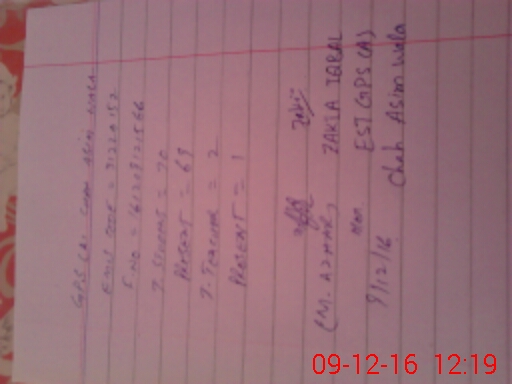 GPS (A) CHAH ASIM WALA
EMIS CODE = 31220152
T. STUDENTS = 70
PRESENT = 69
T. TEACHER = 2
PRESENT = 1
(M. AZHAR)
ZAKIA IQBAL
EST GPS (A)
9/12/16
Chah Asim Wala
09-12-16 12:19